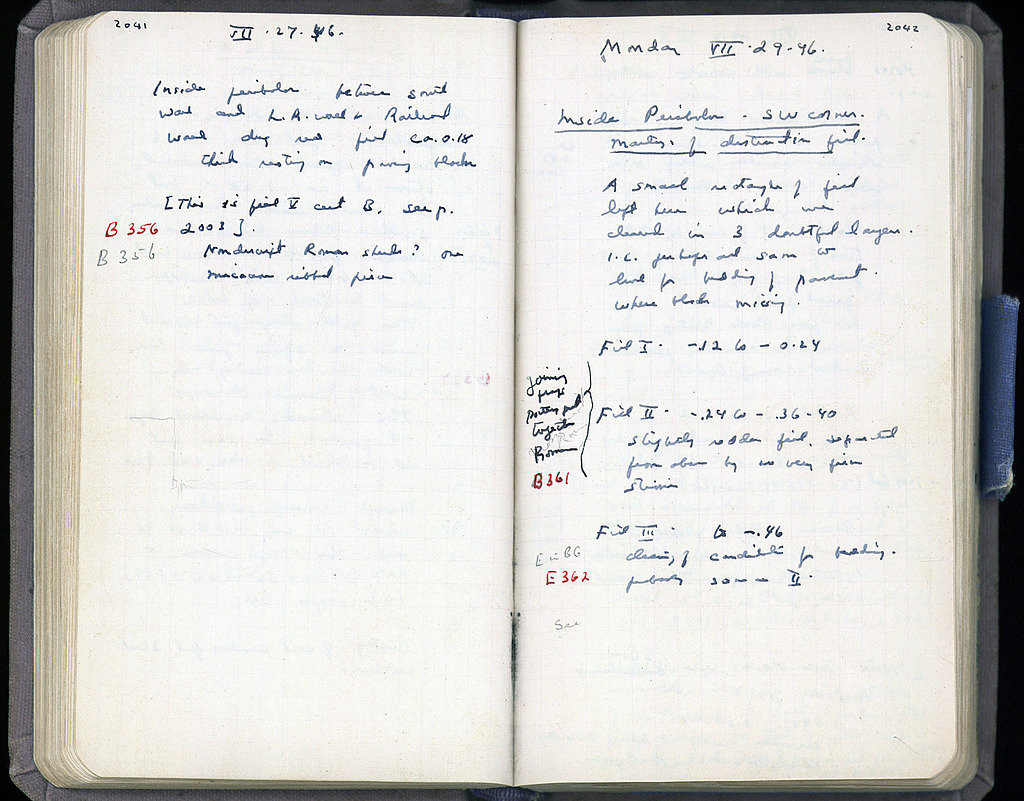 2041
VII · 27 · 46.
Inside peribolos between south
wall and L.A. wall & Railroad
wall dug red fill ca. 0.18
thick resting on paving blocks
[This is fill V cut B, see p.
B 356 2003].
B 356 Nondescript Roman sherds? one
micaceous ribbed piece
2042
Monday VII · 29 - 46.
Inside Peribolos - SW corner.
of destruction fill.
A small rectangle of fill
left here which we
cleared in 3 doubtful layers.
I.e. perhaps all same to
level for bedding of pavement
where blocks missing.
Fill I · -.12 to -0.24
Joining
frags
pottery put
together
Roman
B 361
Fill II · -.24 to -.36-40
slightly redder fill, separated
from above by no very firm
stratum
Fill III · to -.46
cleaning of for bedding.
probably same as II.
E 362
See